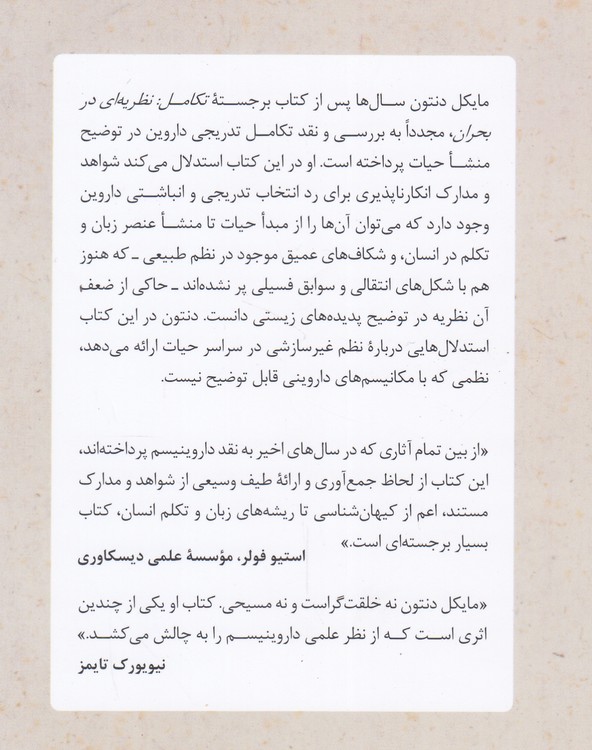 مایکل دنتون سال‌ها پس از کتاب برجستهٔ تکامل: نظریه‌ای در
بحران، مجدداً به بررسی و نقد تکامل تدریجی داروین در توضیح
منشأ حیات پرداخته است. او در این کتاب استدلال می‌کند شواهد
و مدارک انکارناپذیری برای رد انتخاب تدریجی و انباشتی داروین
وجود دارد که می‌توان آن‌ها را از مبدأ حیات تا منشأ عنصر زبان و
تکلم در انسان، و شکاف‌های عمیق موجود در نظم طبیعی ـ که هنوز
هم با شکل‌های انتقالی و سوابق فسیلی پر نشده‌اند ـ حاکی از ضعف
آن نظریه در توضیح پدیده‌های زیستی دانست. دنتون در این کتاب
استدلال‌هایی دربارهٔ نظم غیرسازشی در سراسر حیات ارائه می‌دهد،
نظمی که با مکانیسم‌های داروینی قابل توضیح نیست.
«از بین تمام آثاری که در سال‌های اخیر به نقد داروینیسم پرداخته‌اند،
این کتاب از لحاظ جمع‌آوری و ارائهٔ طیف وسیعی از شواهد و مدارک
مستند، اعم از کیهان‌شناسی تا ریشه‌های زبان و تکلم انسان، کتاب
بسیار برجسته‌ای است.»
استیو فولر، مؤسسهٔ علمی دیسکاوری
«مایکل دنتون نه خلقت‌گراست و نه مسیحی. کتاب او یکی از چندین
اثری است که از نظر علمی داروینیسم را به چالش می‌کشد.»
نیویورک تایمز